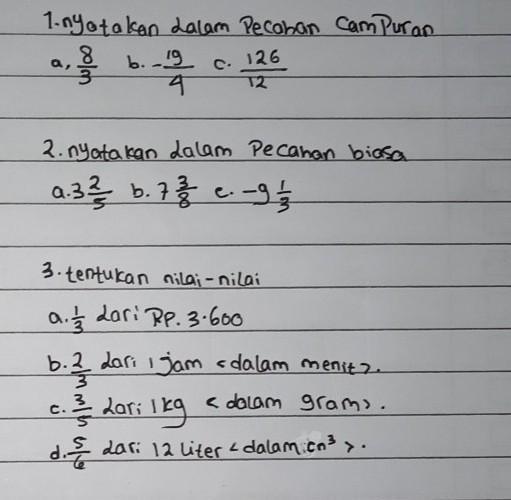 1. nyatakan dalam Pecahan CamPuran
a, 8/3 b. -19/4 c. 126/12
2. nyatakan dalam Pecahan biasa
a. 3 2/5 b. 7 3/8 c. -9 1/3
3. tentukan nilai-nilai
a. 1/3 dari RP. 3.600
b. 2/3 dari 1 jam <dalam menit>.
c. 3/5 dari 1 kg <dalam gram>.
d. 5/6 dari 12 Liter <dalam cm³>.